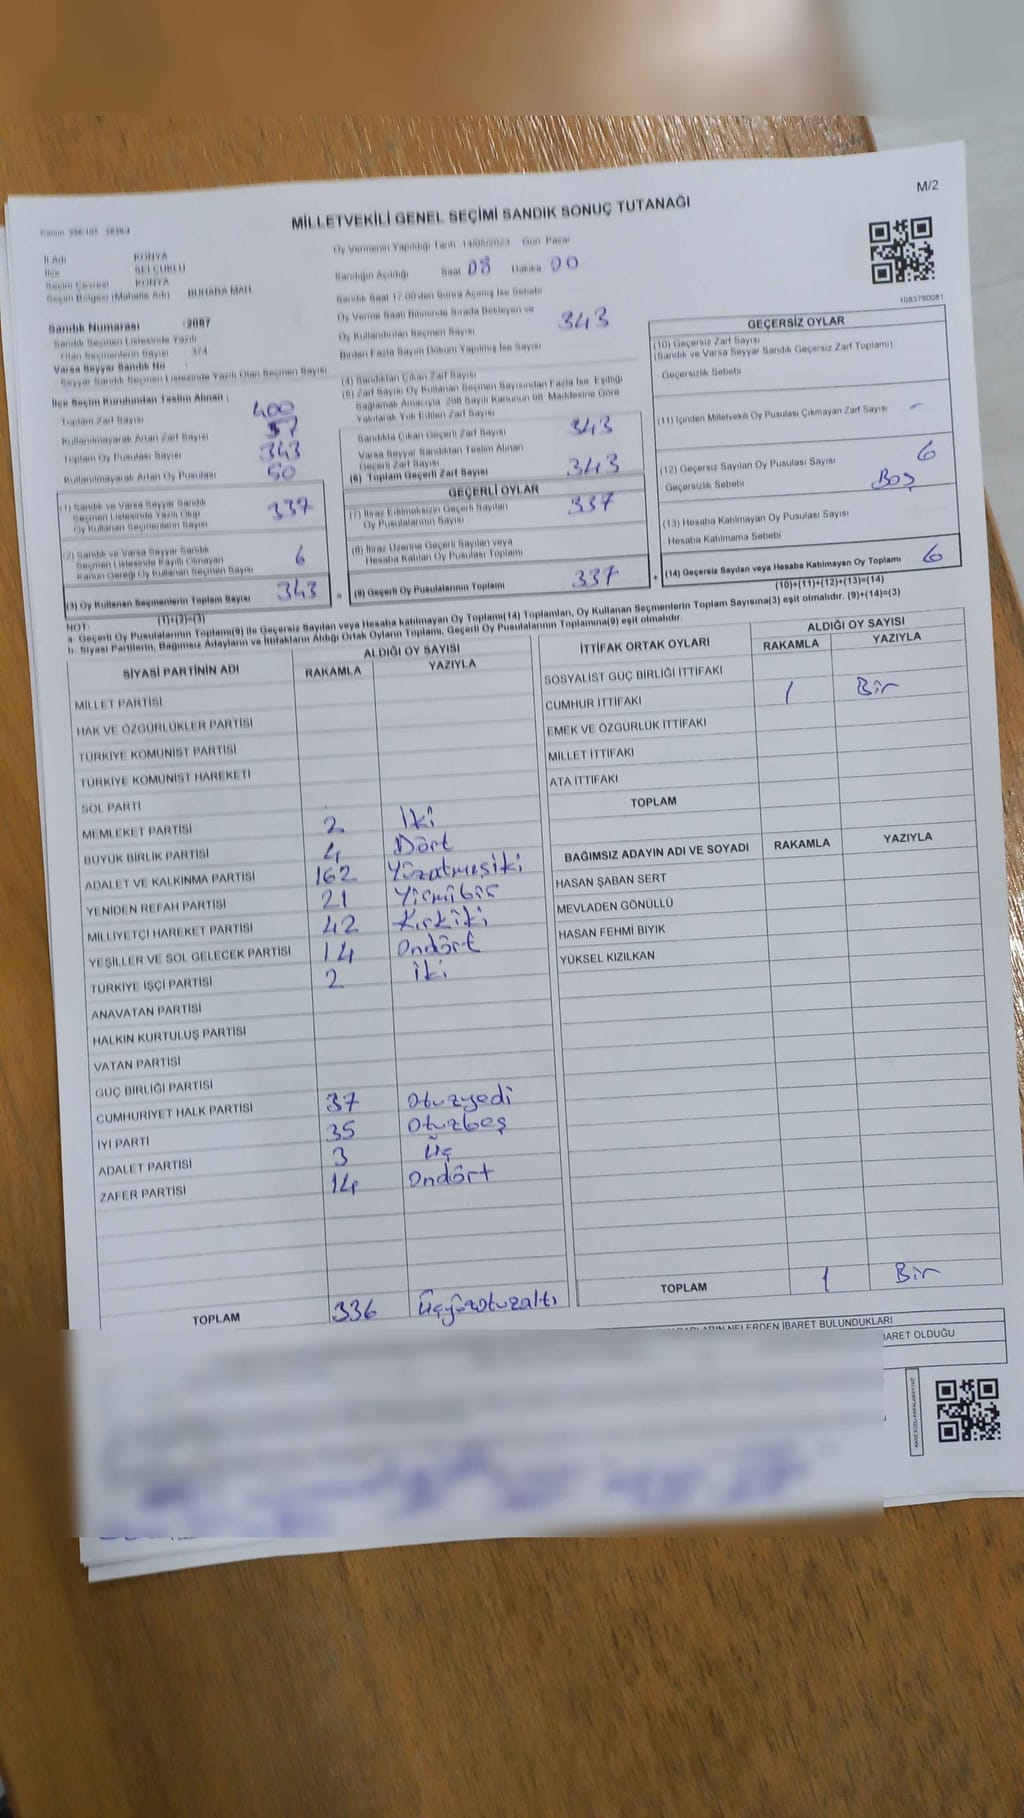 M/2
MİLLETVEKİLİ GENEL SEÇİMİ SANDIK SONUÇ TUTANAĞI
İl Adı KONYA
İlçe SELÇUKLU
Seçim Çevresi KONYA
Seçim Bölgesi (Mahalle Adı) BUHARA MAH
Sandık Numarası : 2087
Sandık Seçmen Listesinde Yazılı
Olan Seçmenlerin Sayısı 374
Varsa Seyyar Sandık No
Seyyar Sandık Seçmen Listesinde Yazılı Olan Seçmen Sayısı
Oy Vermenin Yapıldığı Tarih 14/05/2023 Gün Pazar
Sandığın Açıldığı Saat 08 Dakika 00
Sandık Saat 17:00'den Sonra Açılmış İse Sebebi
Oy Verme Saati Bitiminde Sırada Bekleyen ve
Oy Kullandırılan Seçmen Sayısı 343
Birden Fazla Sayım Döküm Yapılmış İse Sayısı
1083790081
İlçe Seçim Kurulundan Teslim Alınan :
Toplam Zarf Sayısı 400
Kullanılmayarak Artan Zarf Sayısı 57
Toplam Oy Pusulası Sayısı 343
Kullanılmayarak Artan Oy Pusulası 50
(1) Sandık ve Varsa Seyyar Sandık
Seçmen Listesinde Yazılı Olup
Oy Kullanan Seçmenlerin Sayısı 337
(2) Sandık ve Varsa Seyyar Sandık
Seçmen Listesinde Kayıtlı Olmayan
Kanun Gereği Oy Kullanan Seçmen Sayısı 6
(3) Oy Kullanan Seçmenlerin Toplam Sayısı 343
(1)+(2)=(3)
(4) Sandıktan Çıkan Zarf Sayısı
(5) Zarf Sayısı Oy Kullanan Seçmen Sayısından Fazla İse, Eşitliği
Bağlamak Amacıyla, 298 Sayılı Kanunun 98. Maddesine Göre
Yakılarak Yok Edilen Zarf Sayısı
Sandıkta Çıkan Geçerli Zarf Sayısı 343
Varsa Seyyar Sandıktan Teslim Alınan
Geçerli Zarf Sayısı
(6) Toplam Geçerli Zarf Sayısı 343
GEÇERLİ OYLAR
(7) İtiraz Edilmeksizin Geçerli Sayılan
Oy Pusulalarının Sayısı 337
(8) İtiraz Üzerine Geçerli Sayılan veya
Hesaba Katılan Oy Pusulası Toplamı
= (9) Geçerli Oy Pusulalarının Toplamı 337 +
GEÇERSİZ OYLAR
(10) Geçersiz Zarf Sayısı
(Sandık ve Varsa Seyyar Sandık Geçersiz Zarf Toplamı)
Geçersizlik Sebebi
(11) İçinden Milletvekili Oy Pusulası Çıkmayan Zarf Sayısı -
(12) Geçersiz Sayılan Oy Pusulası Sayısı 6
Geçersizlik Sebebi Boş
(13) Hesaba Katılmayan Oy Pusulası Sayısı
Hesaba Katılmama Sebebi
(14) Geçersiz Sayılan veya Hesaba Katılmayan Oy Toplamı 6
(10)+(11)+(12)+(13)=(14)
NOT:
a- Geçerli Oy Pusulalarının Toplamı(9) ile Geçersiz Sayılan veya Hesaba katılmayan Oy Toplamı(14) Toplamları, Oy Kullanan Seçmenlerin Toplam Sayısına(3) eşit olmalıdır. (9)+(14)=(3)
b- Siyasi Partilerin, Bağımsız Adayların ve İttifakların Aldığı Ortak Oyların Toplamı, Geçerli Oy Pusulalarının Toplamına(9) eşit olmalıdır.
SİYASİ PARTİNİN ADI ALDIĞI OY SAYISI
RAKAMLA YAZIYLA
MİLLET PARTİSİ
HAK VE ÖZGÜRLÜKLER PARTİSİ
TÜRKİYE KOMÜNİST PARTİSİ
TÜRKİYE KOMÜNİST HAREKETİ
SOL PARTİ
MEMLEKET PARTİSİ 2 İki
BÜYÜK BİRLİK PARTİSİ 4 Dört
ADALET VE KALKINMA PARTİSİ 162 Yüzatmışiki
YENİDEN REFAH PARTİSİ 21 Yirmibir
MİLLİYETÇİ HAREKET PARTİSİ 42 Kırkiki
YEŞİLLER VE SOL GELECEK PARTİSİ 14 Ondört
TÜRKİYE İŞÇİ PARTİSİ 2 İki
ANAVATAN PARTİSİ
HALKIN KURTULUŞ PARTİSİ
VATAN PARTİSİ
GÜÇ BİRLİĞİ PARTİSİ
CUMHURİYET HALK PARTİSİ 37 Otuzyedi
İYİ PARTİ 35 Otuzbeş
ADALET PARTİSİ 3 Üç
ZAFER PARTİSİ 14 Ondört
TOPLAM 336 Üçyüzotuzaltı
İTTİFAK ORTAK OYLARI ALDIĞI OY SAYISI
RAKAMLA YAZIYLA
SOSYALİST GÜÇ BİRLİĞİ İTTİFAKI
CUMHUR İTTİFAKI 1 Bir
EMEK VE ÖZGÜRLÜK İTTİFAKI
MİLLET İTTİFAKI
ATA İTTİFAKI
TOPLAM
BAĞIMSIZ ADAYIN ADI VE SOYADI RAKAMLA YAZIYLA
HASAN ŞABAN SERT
MEVLADEN GÖNÜLLÜ
HASAN FEHMİ BIYIK
YÜKSEL KIZILKAN
TOPLAM 1 Bir
NELERDEN İBARET BULUNDUKLARI
İBARET OLDUĞU